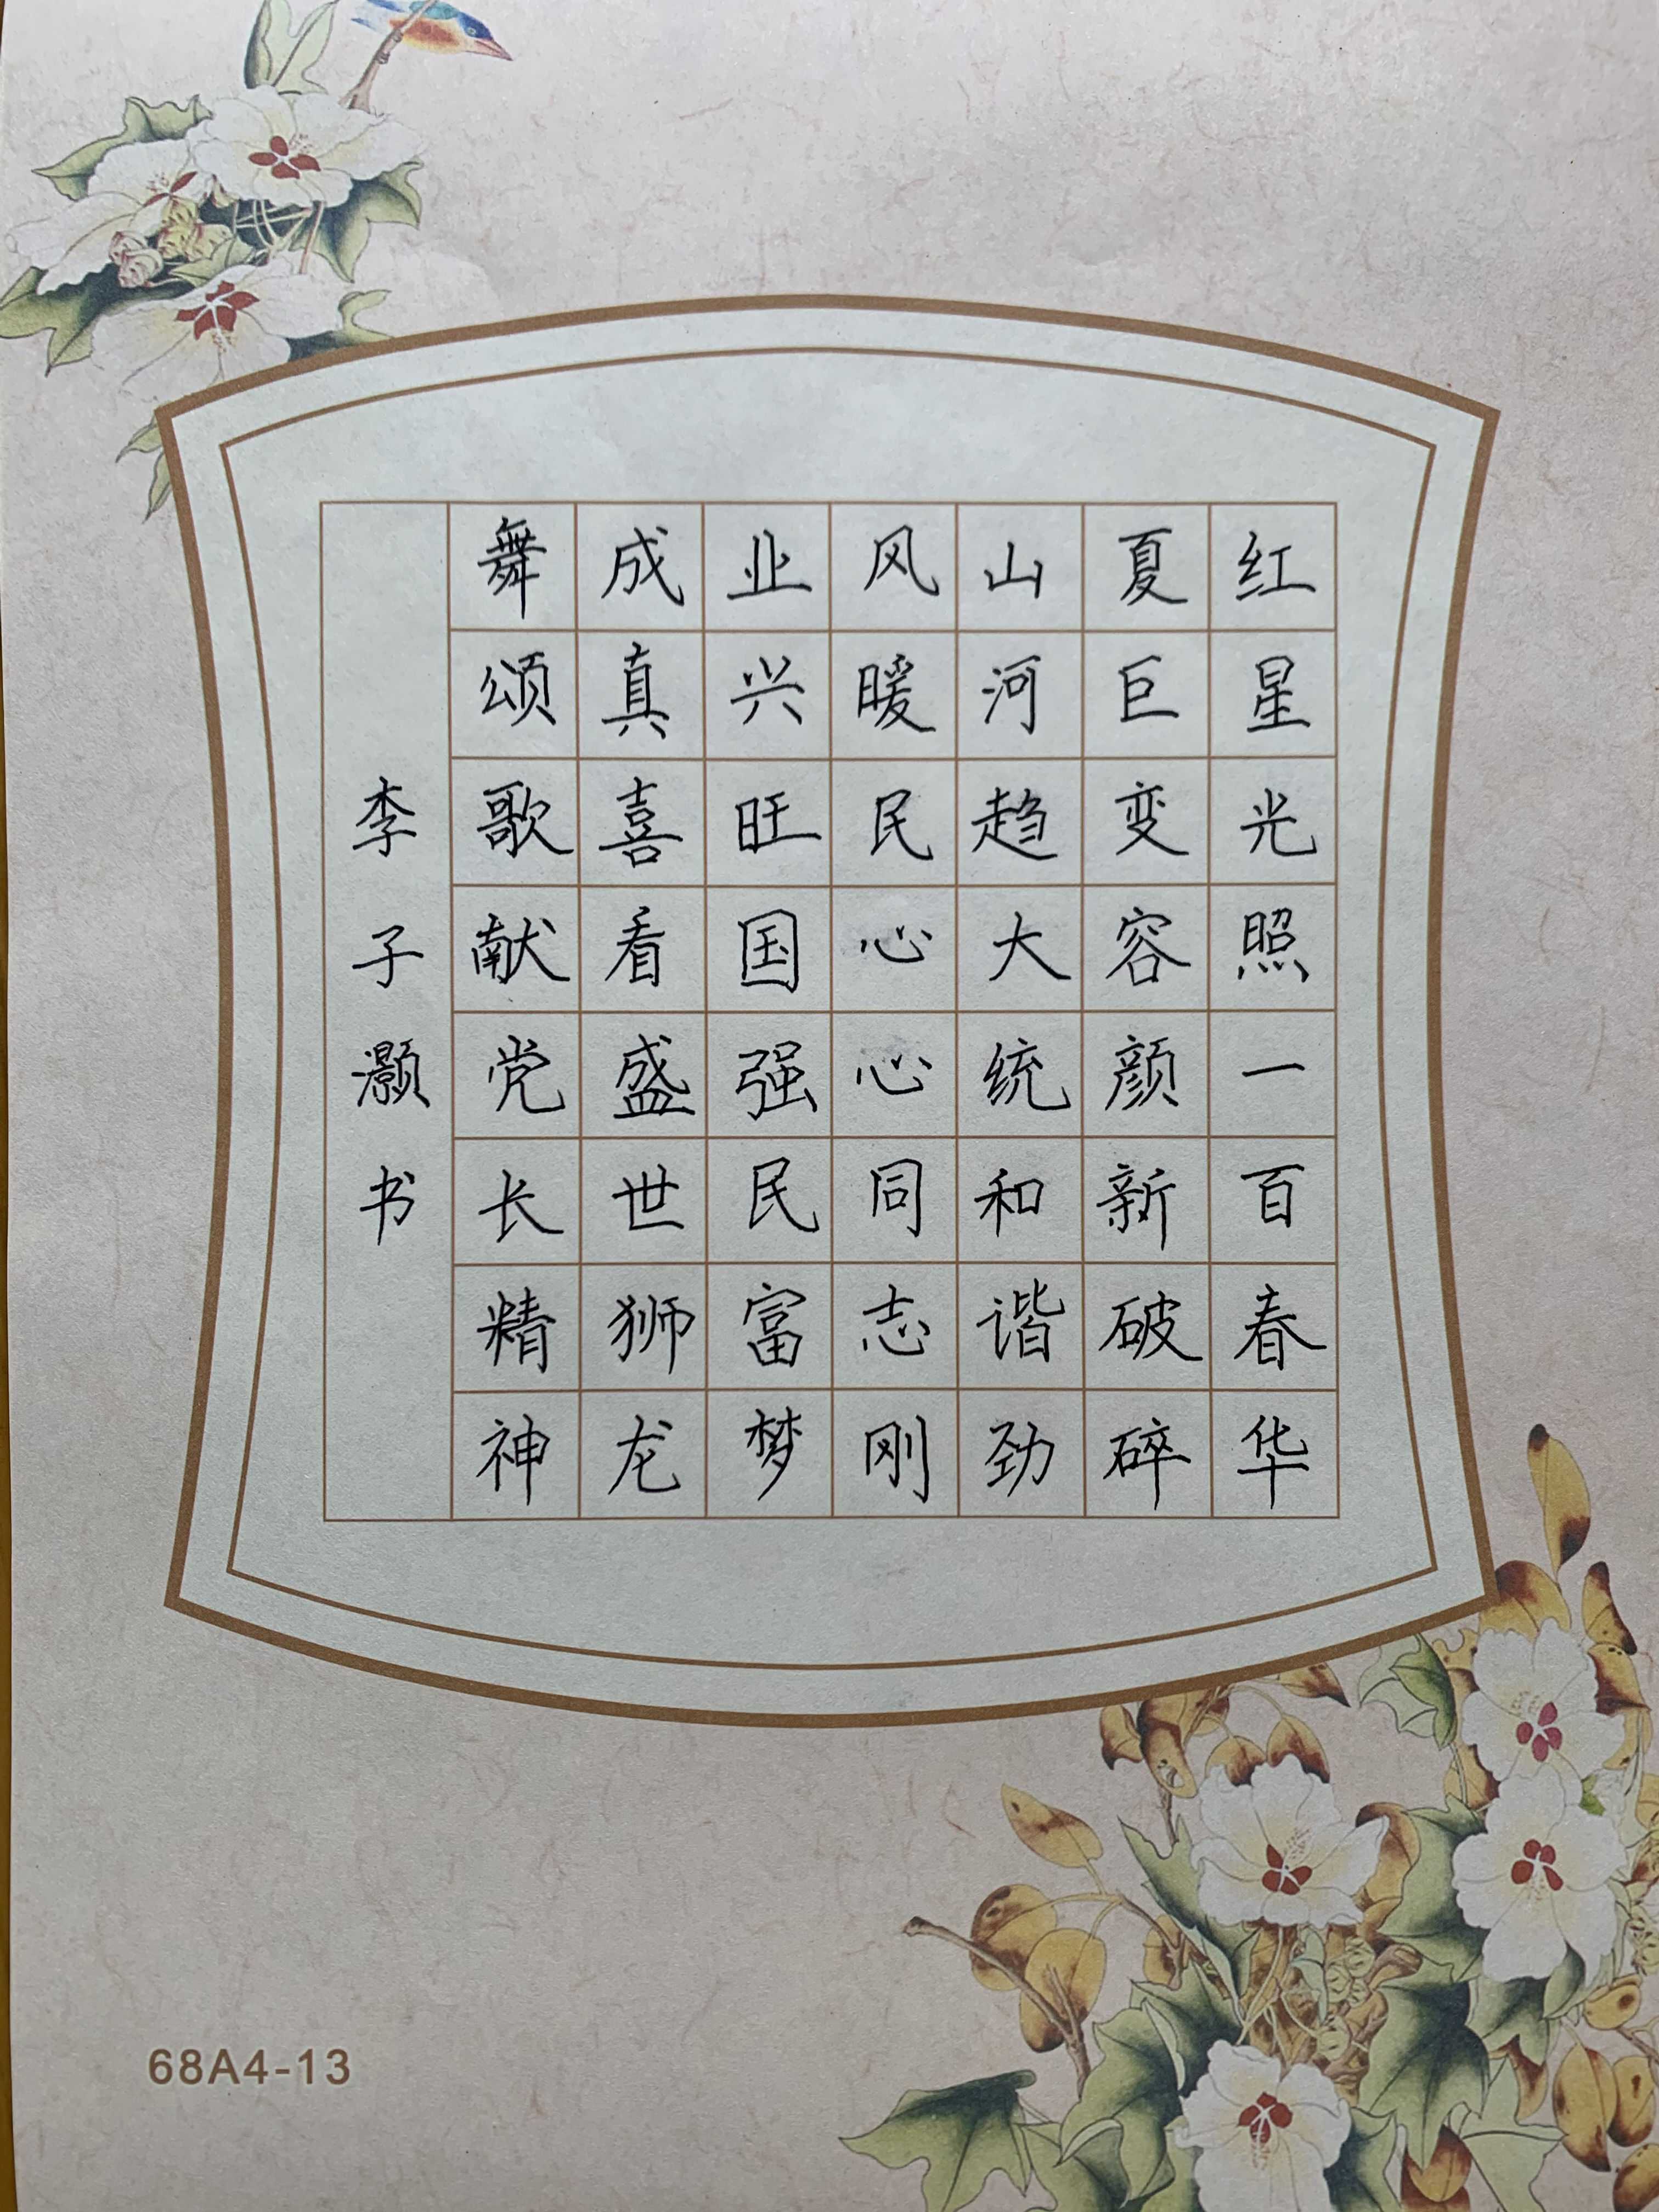 红星光照一百春华
夏巨变容颜新破碎
山河趋大统和谐劲
风暖民心心同志刚
业兴旺国强民富梦
成真喜看盛世狮龙
舞颂歌献党长精神
李子灏书
68A4-13